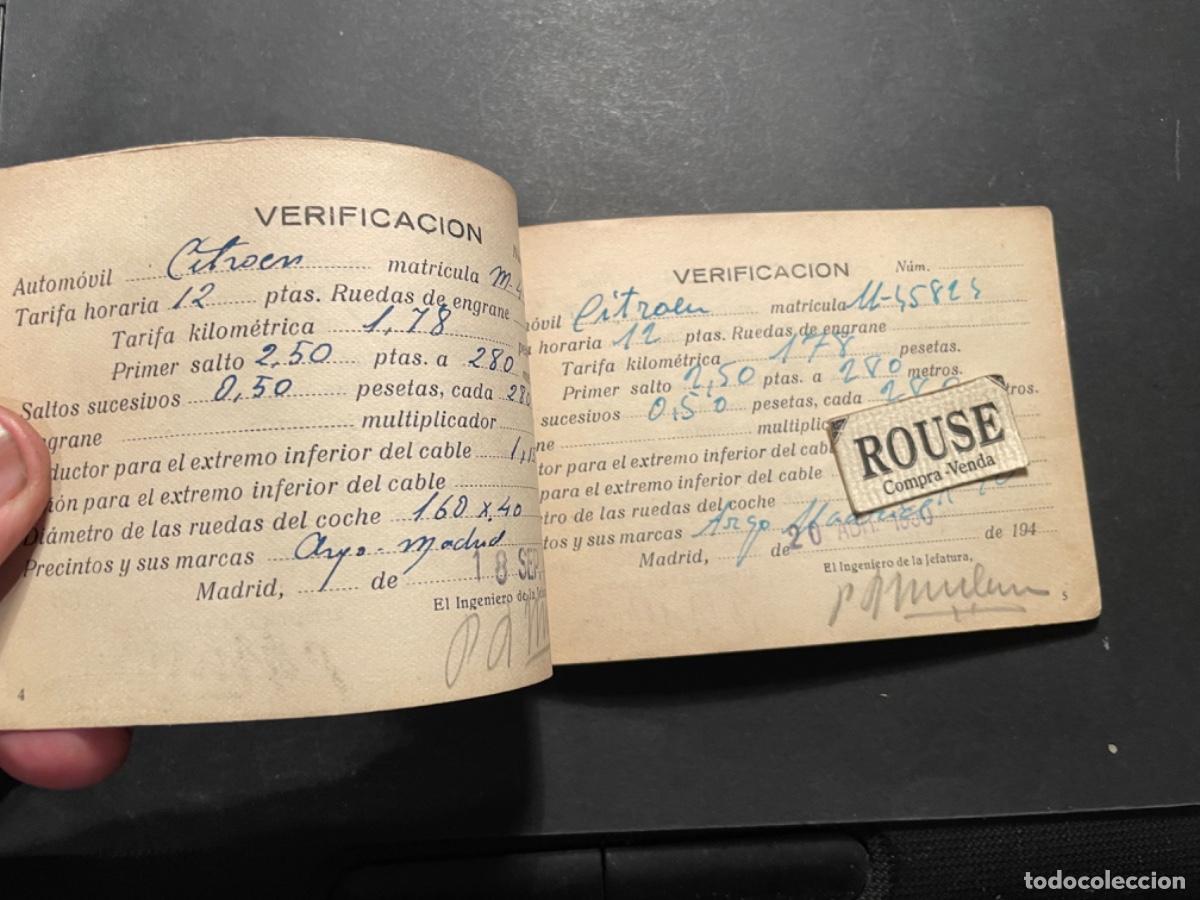 VERIFICACION
Automóvil Citroen matrícula M-4
Tarifa horaria 12 ptas. Ruedas de engrane
Tarifa kilométrica 1,78
Primer salto 2,50 ptas. a 280
Saltos sucesivos 0,50 pesetas, cada 280
grane multiplicador
ductor para el extremo inferior del cable 1,15
ón para el extremo inferior del cable
Diámetro de las ruedas del coche 160 x 40
Precintos y sus marcas Argo-Madrid
Madrid, de 18 SEP.
El Ingeniero de la Jefat
4
VERIFICACION Núm.
óvil Citroen matrícula M-45824
horaria 12 ptas. Ruedas de engrane
Tarifa kilométrica 178 pesetas.
Primer salto 2,50 ptas. a 280 metros.
sucesivos 0,50 pesetas, cada 280 tros.
ne multiplic
tor para el extremo inferior del cab
para el extremo inferior del cable
tro de las ruedas del coche
tos y sus marcas Argo Madrid
Madrid, de 20 ABR. 1950 de 194
El Ingeniero de la Jefatura,
5
ROUSE
Compra-Venda
todocoleccion